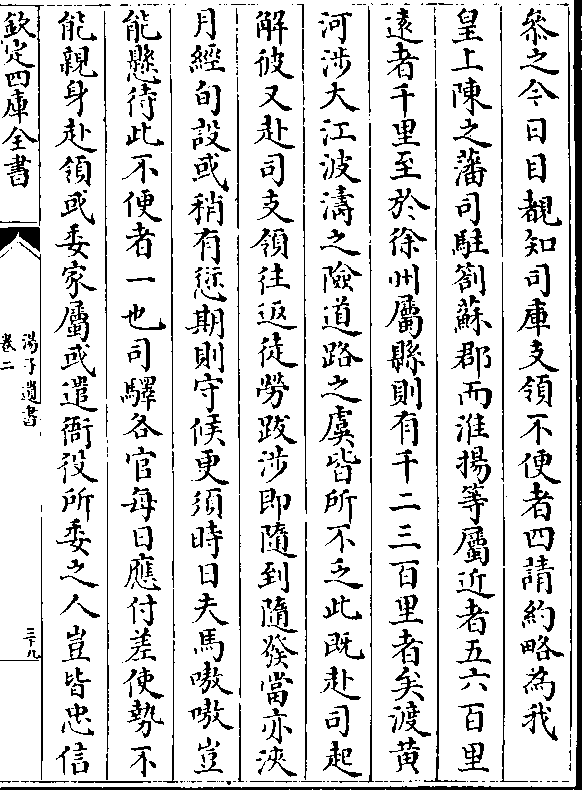 參之今日目覩知司庫支領不便者四請約略為我
皇上陳之藩司駐劄蘇郡而淮揚等屬近者五六百里
遠者千里至於徐州屬縣則有千二三百里者矣渡黃
河涉大江波濤之險道路之虞皆所不乏此既赴司起
解彼又赴司支領往返徒勞跋涉即隨到隨發當亦浹
月經旬設或稍有愆期則守候更須時日夫馬嗷嗷豈
能懸待此不便者一也司驛各官每日應付差使勢不
能親身赴領或委家屬或遣衙役所委之人豈皆忠信
欽定四庫全書
湯子遺書
卷二
三十九